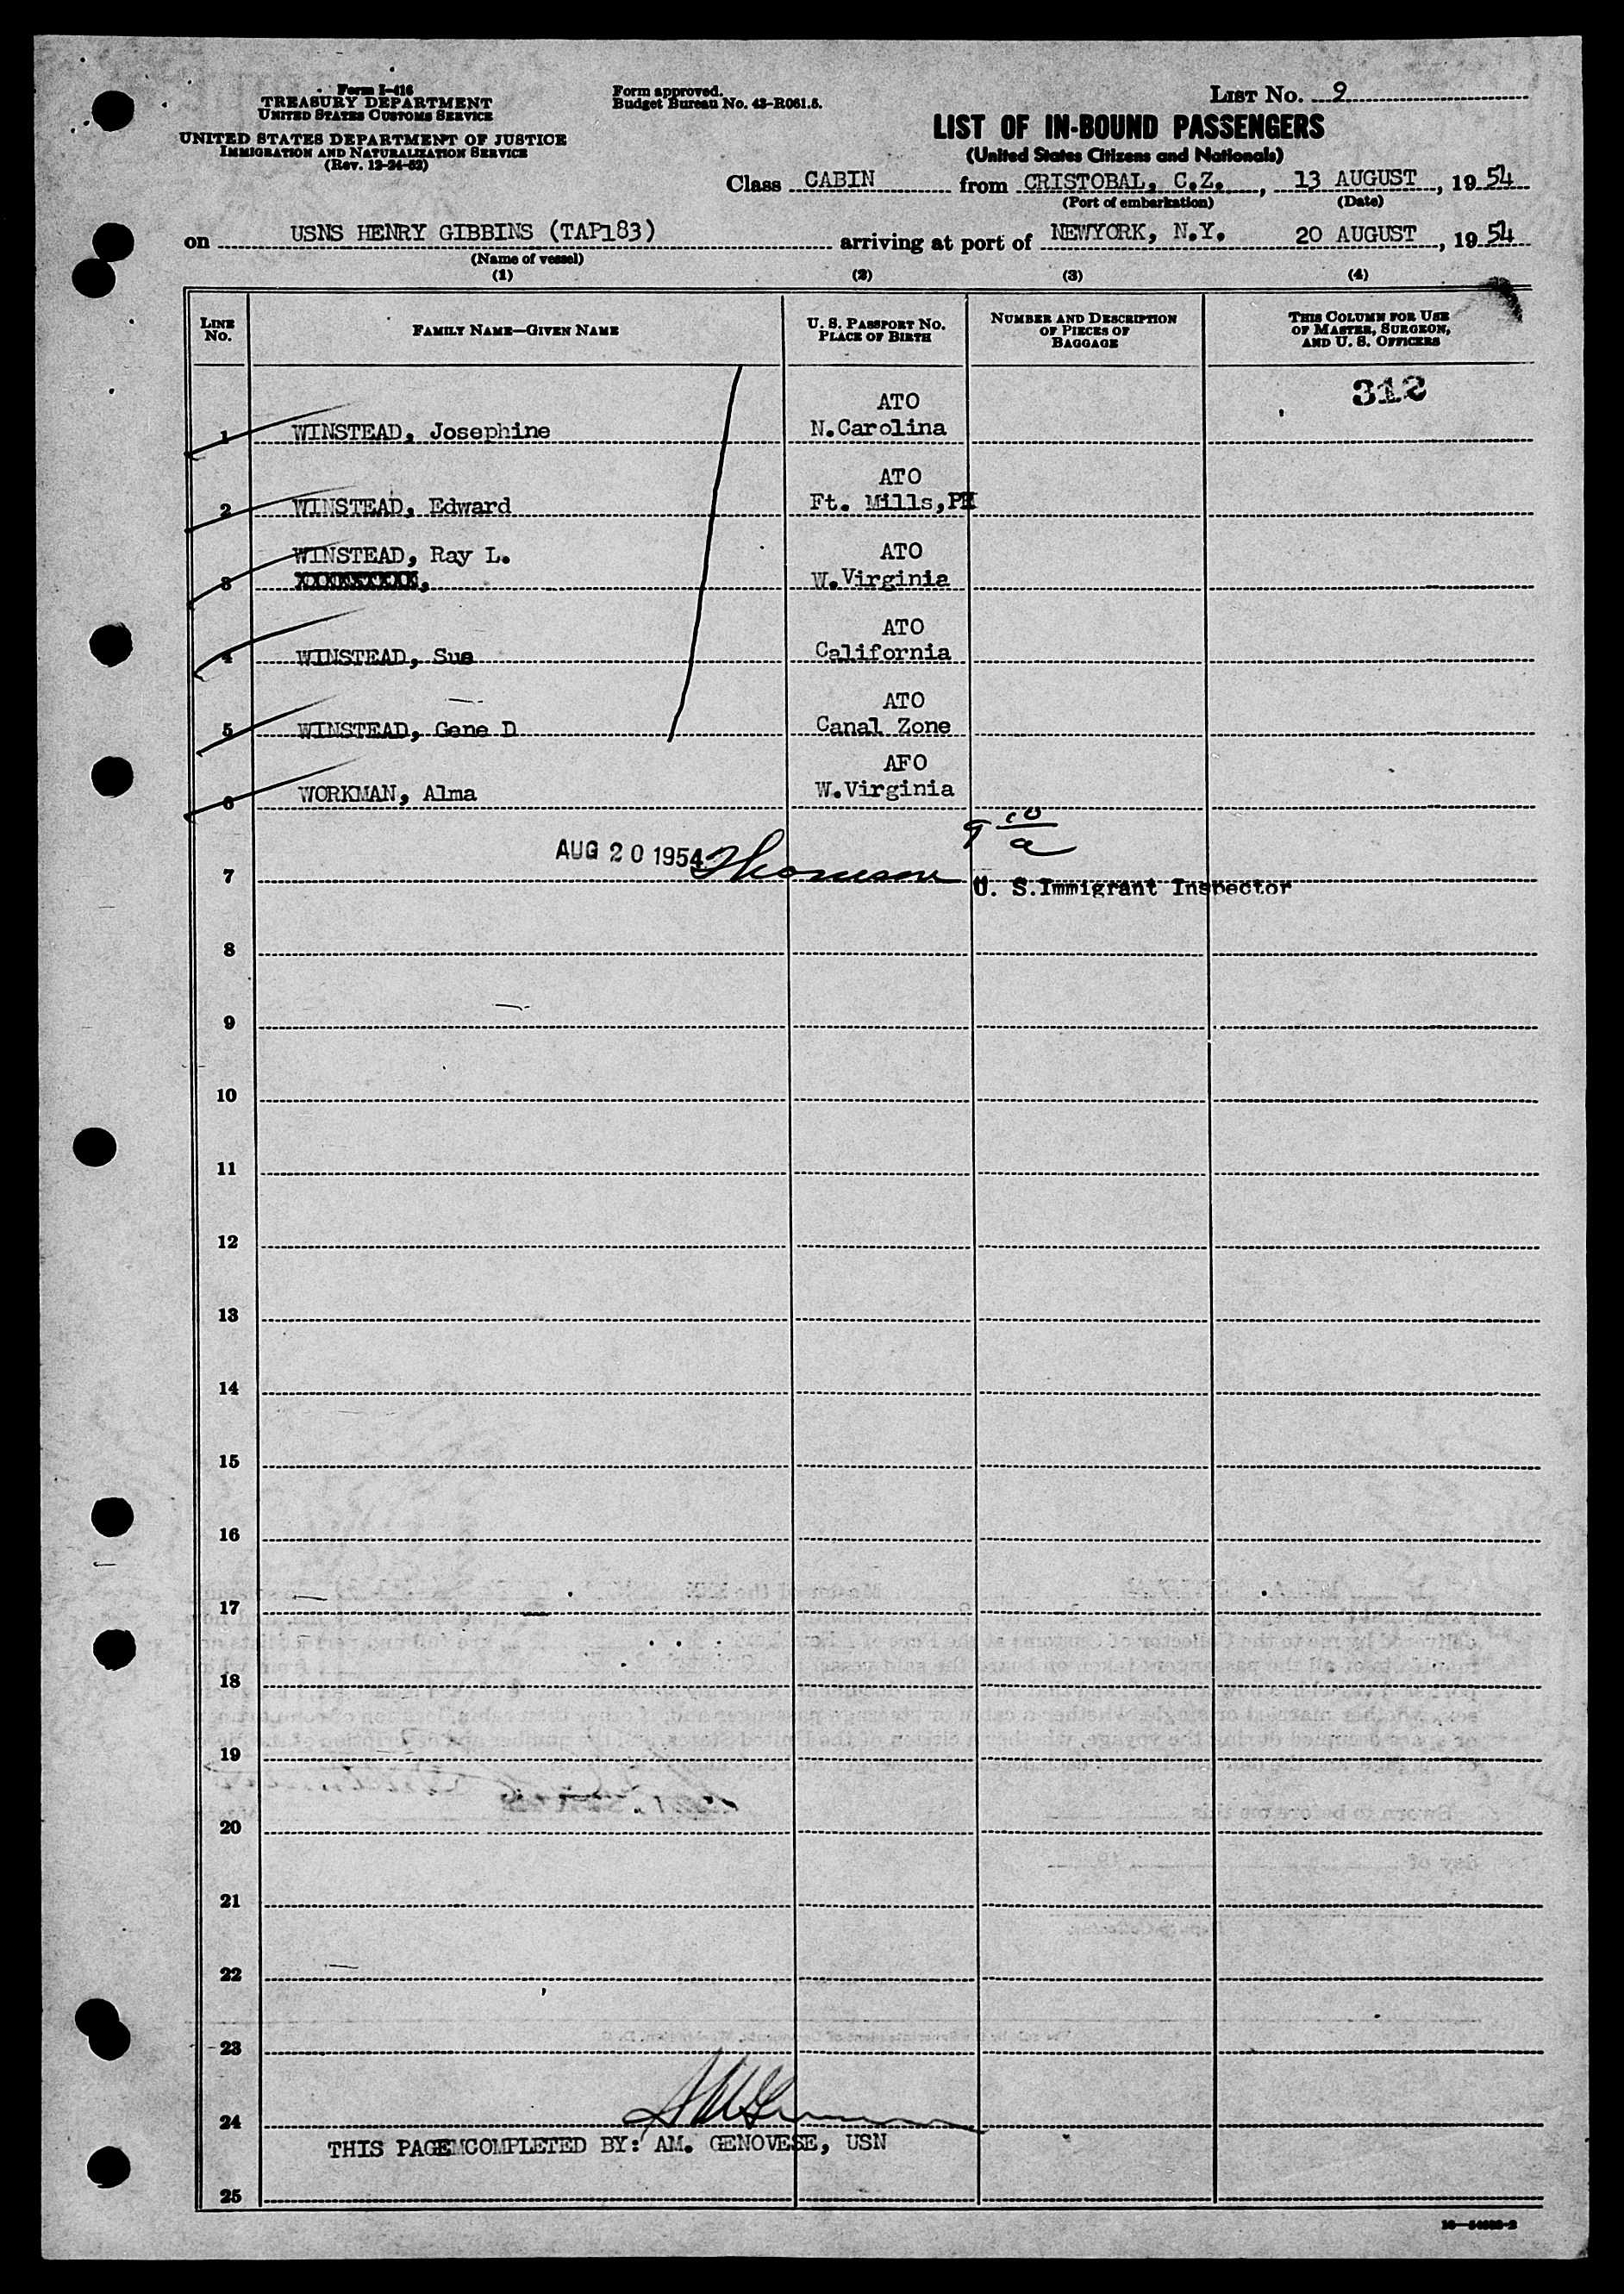 Form I-416
TREASURY DEPARTMENT
UNITED STATES CUSTOMS SERVICE
UNITED STATES DEPARTMENT OF JUSTICE
IMMIGRATION AND NATURALIZATION SERVICE
(Rev. 12-24-52)
Form approved.
Budget Bureau No. 43-R061.5.
LIST No. 9
LIST OF IN-BOUND PASSENGERS
(United States Citizens and Nationals)
Class CABIN from CRISTOBAL, C.Z., 13 AUGUST, 1954
(Port of embarkation) (Date)
on USNS HENRY GIBBINS (TAP183) arriving at port of NEWYORK, N.Y. 20 AUGUST, 1954
(Name of vessel)
(1) (2) (3) (4)
LINE No. FAMILY NAME—GIVEN NAME U. S. PASSPORT No. PLACE OF BIRTH NUMBER AND DESCRIPTION OF PIECES OF BAGGAGE THIS COLUMN FOR USE OF MASTER, SURGEON, AND U. S. OFFICERS
312
ATO
1 WINSTEAD, Josephine N.Carolina
ATO
2 WINSTEAD, Edward Ft. Mills,PH
WINSTEAD, Ray L. ATO
3 W.Virginia
ATO
4 WINSTEAD, Sue California
ATO
5 WINSTEAD, Gene D Canal Zone
AFO
6 WORKMAN, Alma W.Virginia
AUG 20 1954
7 U. S.Immigrant Inspector
8
9
10
11
12
13
14
15
16
17
18
19
20
21
22
23
24
THIS PAGEMCOMPLETED BY: AM. GENOVESE, USN
25